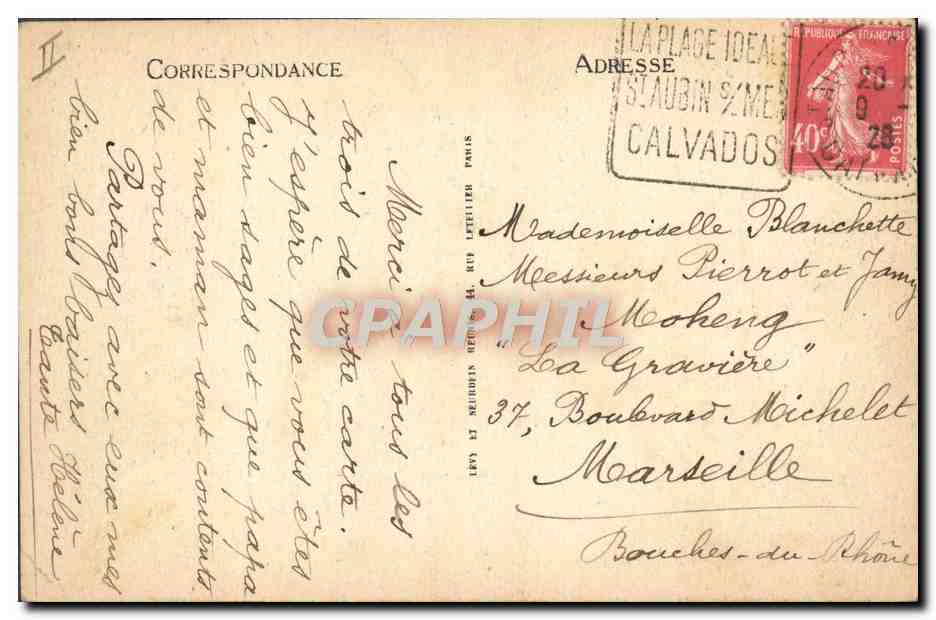 CORRESPONDANCE
ADRESSE
LA PLAGE IDEAL
St AUBIN S/ MER
CALVADOS
REPUBLIQUE FRANÇAISE
40c
POSTES
20
9
28
II
Merci à tous les
trois de votre carte.
J'espère que vous êtes
bien sages et que papa
et maman sont contents
de vous.
Partagez avec eux mes
bien bons baisers
Tante Hélène
LÉVY ET NEURDEIN RÉUNIS, 44, RUE LETELLIER PARIS
Mademoiselle Blanchette
Messieurs Pierrot et Jamy
Moheng
"La Gravière"
37, Boulevard Michelet
Marseille
Bouches-du-Rhône
CPAPHIL